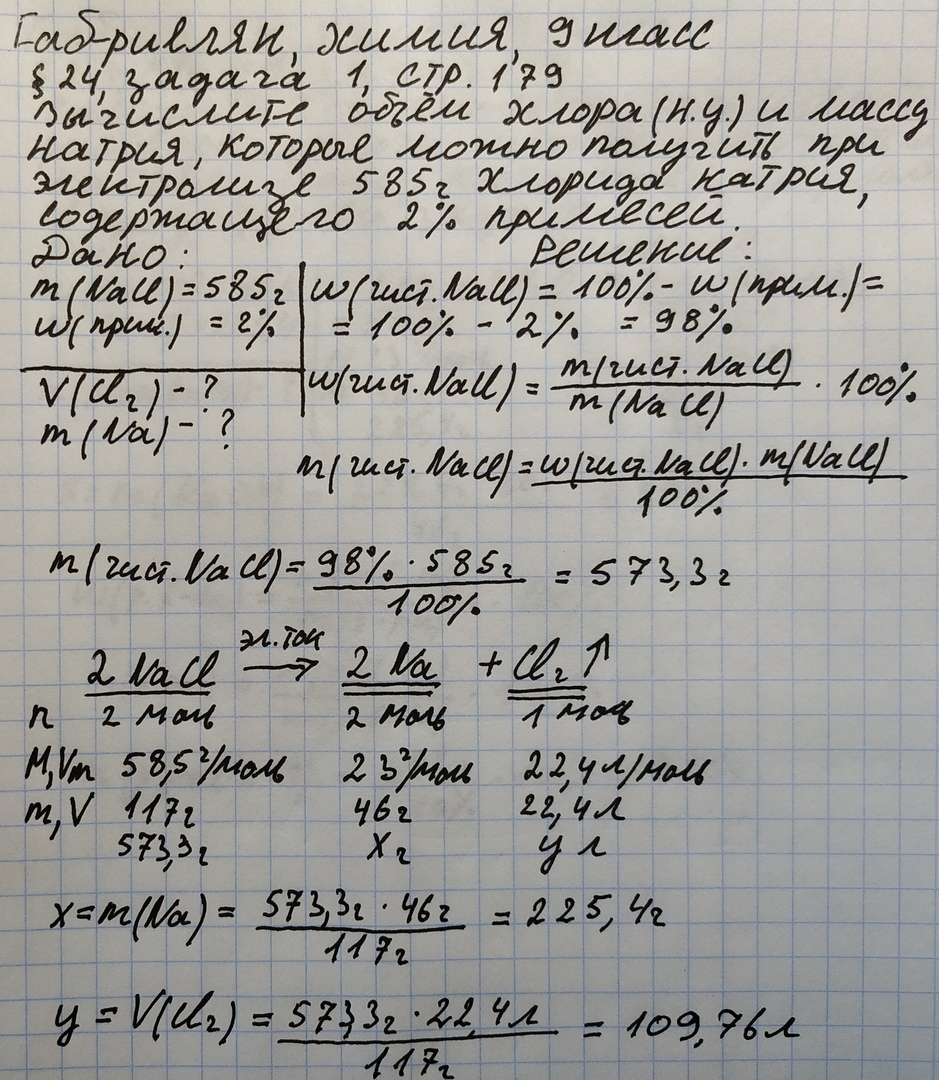 Габриелян, химия, 9 класс
§ 24, задача 1, стр. 179
Вычислите объём хлора (н.у.) и массу
натрия, которые можно получить при
электролизе 585г хлорида натрия,
содержащего 2% примесей.
Дано: Решение:
m(NaCl) = 585г w(чист. NaCl) = 100% - w(прим.) =
w(прим.) = 2% = 100% - 2% = 98%
V(Cl₂) - ? w(чист. NaCl) = m(чист. NaCl) / m(NaCl) · 100%
m(Na) - ?
m(чист. NaCl) = w(чист. NaCl) · m(NaCl) / 100%
m(чист. NaCl) = 98% · 585г / 100% = 573,3г
эл. ток
2 NaCl → 2 Na + Cl₂↑
n 2 моль 2 моль 1 моль
M, Vm 58,5 г/моль 23 г/моль 22,4 л/моль
m, V 117г 46г 22,4 л
573,3г x г y л
x = m(Na) = 573,3г · 46г / 117г = 225,4г
y = V(Cl₂) = 573,3г · 22,4л / 117г = 109,76л